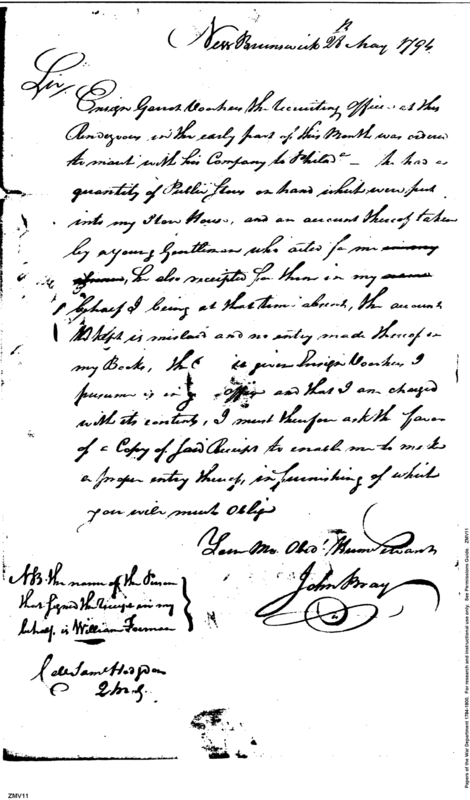 New Brunswick 28 May 1794
Sir,
Ensign Garret Voorhees the recruiting officer at this
Rendezvous in the early part of this Month was ordered
to march with his Company to Philad.a – he had a
quantity of Public Stores on hand which were put
into my Store House, and an account thereof taken
by a young Gentleman who acted for me in my
absence, he also receipted for them in my name
behalf I being at that time absent, the account
kept is mislaid and no entry made thereof in
my Books, the is given Ensign Voorhees I
presume is in office and that I am charged
with its contents, I must therefore ask the favor
of a Copy of said Receipt to enable me to make
a proper entry thereof, in furnishing of which
you will much Oblige
Your Mo. Obed.t Hum Servant
John Bray
NB. the name of the Person
that signed the Receipt in my
behalf is William Forman
Saml Hodgdon
Q M G
Papers of the War Department 1784-1800. For research and instructional use only. See Permissions Guide. ZMV11
ZMV11